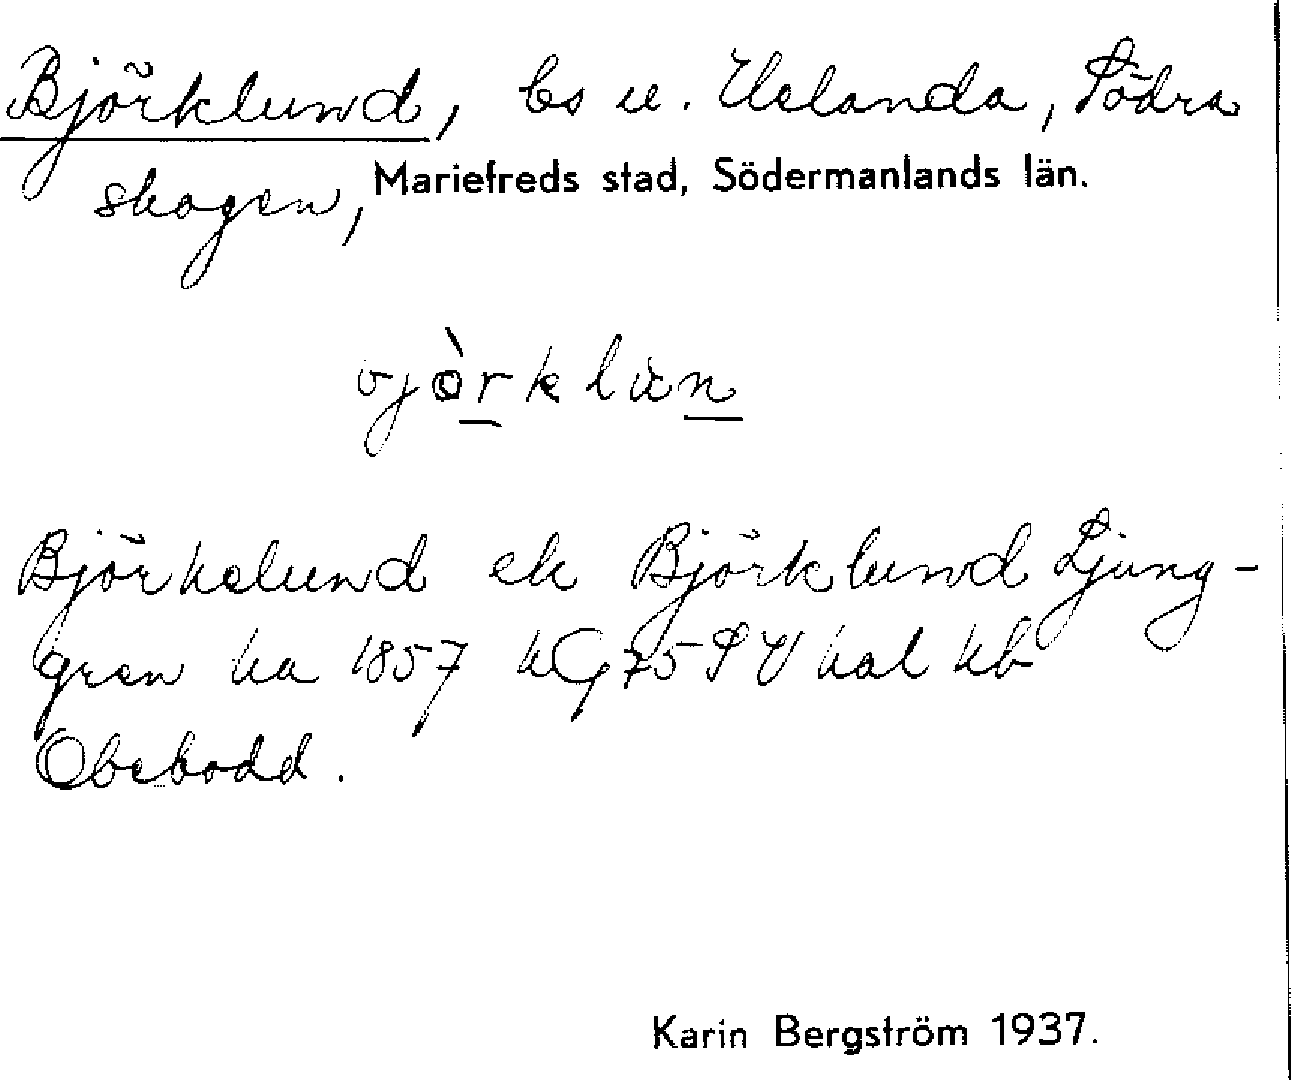 Björklund, bs u. Uelanda, Södra
skogen, Mariefreds stad, Södermanlands län.
Björkelund ek Björklund Ljung-
gren ka 1857 kG 75 SV kal kb
Obebodd.
Karin Bergström 1937.